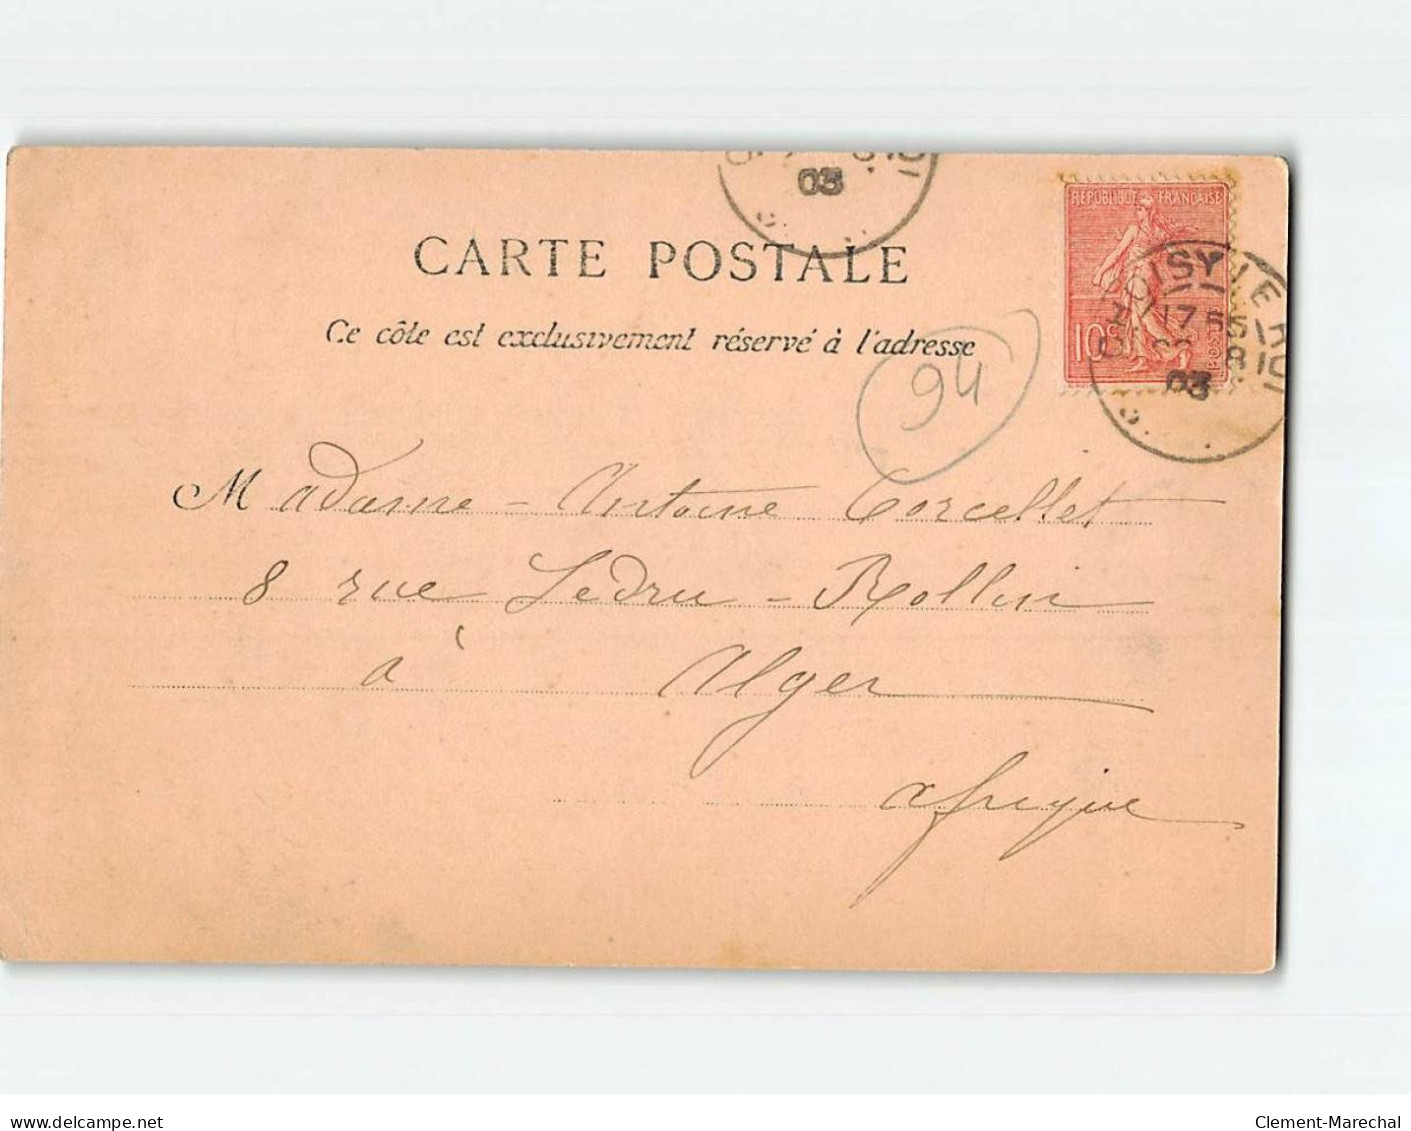 03
CARTE POSTALE
Ce côte est exclusivement réservé à l'adresse
RÉPUBLIQUE FRANÇAISE
10c
OISY LE R
17 55
03
94
Madame - Antoine Corcellet
8 rue Ledru - Rollin
à Alger
Afrique
delcampe.net
Clement-Marechal